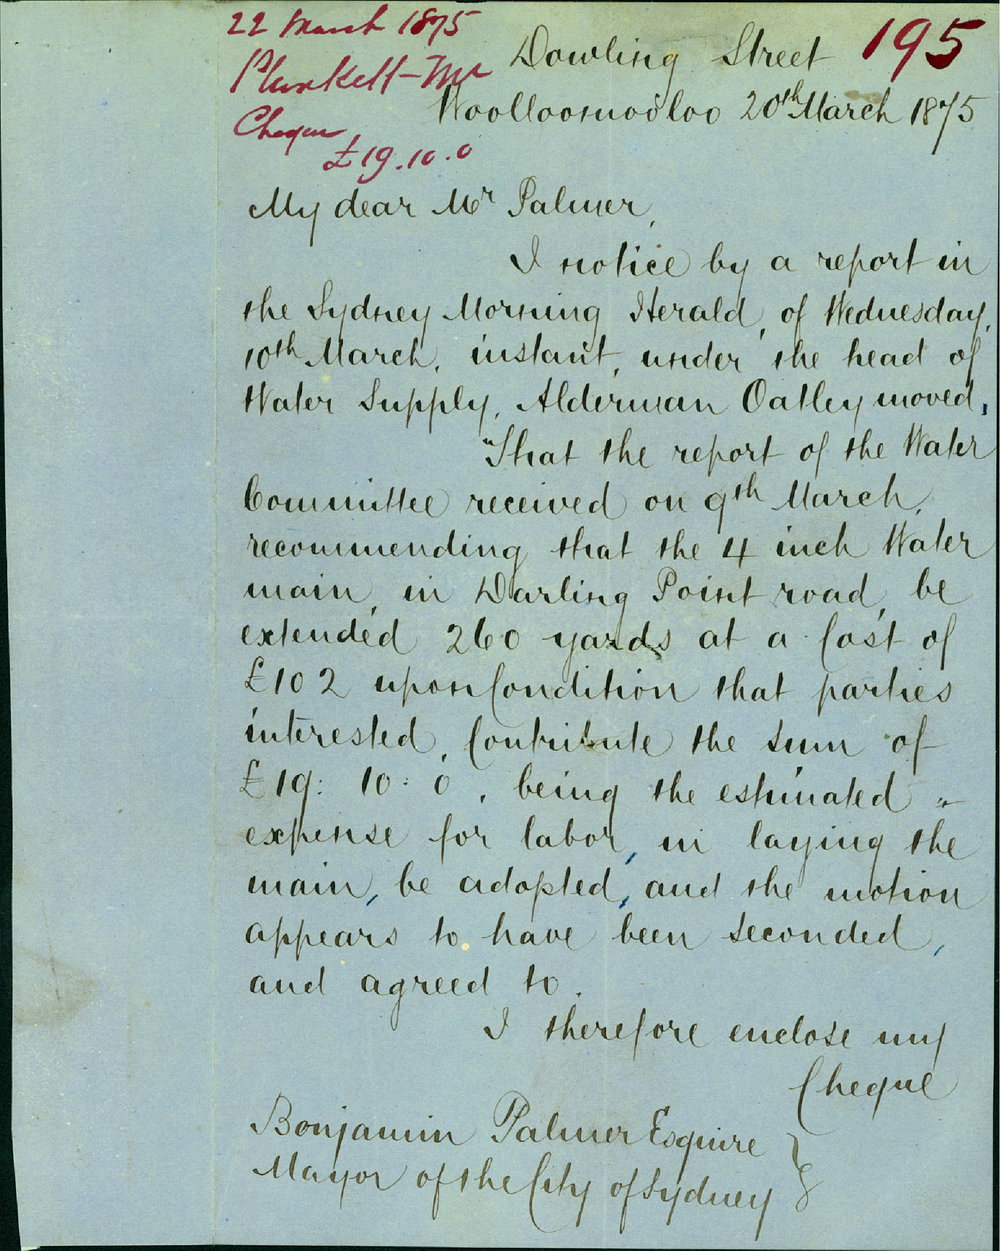 22 March 1875
Plunkett - Mr
Cheque
£19.10.0
195
Dowling Street
Woolloomooloo 20th March 1875
My dear Mr Palmer,
I notice by a report in
the Sydney Morning Herald, of Wednesday,
10th March, instant, under the head of
Water Supply, Alderman Oatley moved,
"That the report of the Water
Committee received on 9th March,
recommending that the 4 inch Water
main, in Darling Point road, be
extended 260 yards at a Cost of
£102 upon Condition that parties
interested, Contribute the sum of
£19: 10: 0, being the estimated "
expense for labor, in laying the
main, be adopted, and the motion
appears to have been seconded,
and agreed to.
I therefore enclose my
Cheque
Benjamin Palmer Esquire }
Mayor of the City of Sydney }